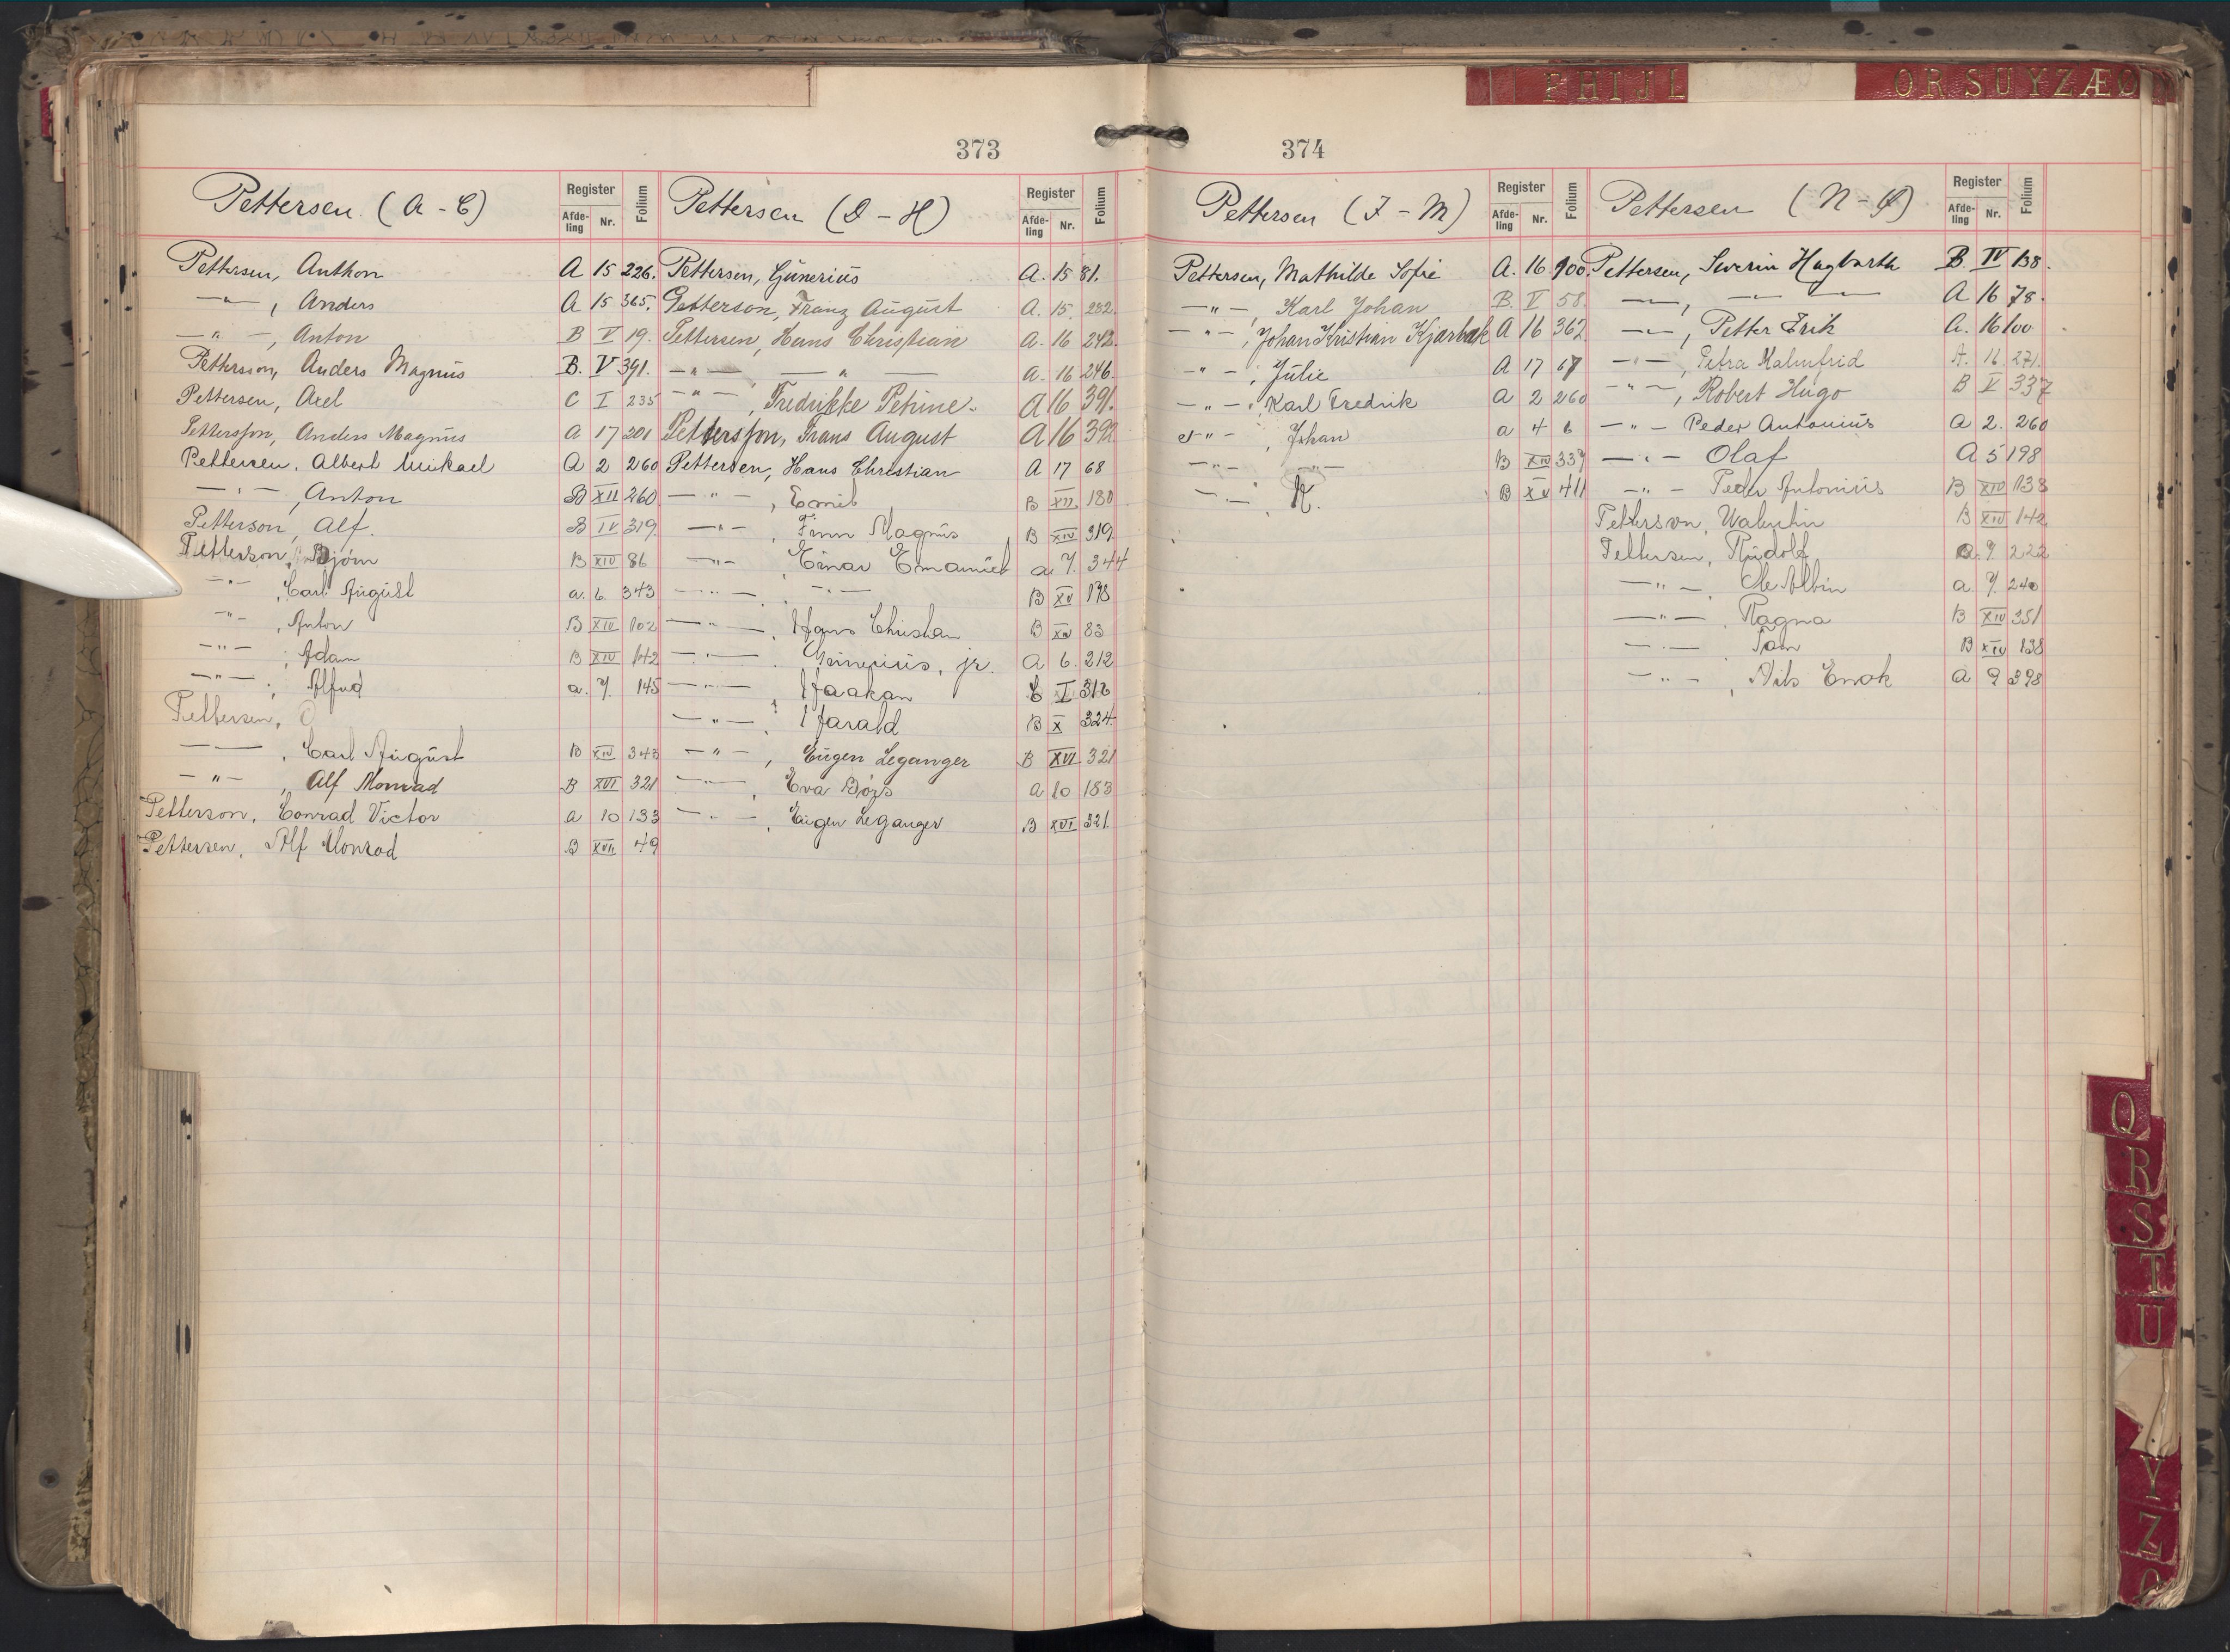 PHIJL
ORSUYZÆØ
373
Pettersen (A-C)
Register
Afde-ling
Nr.
Folium
Pettersen, Anthon A 15 226.
—"—, Anders A 15 365.
—"—, Anton B V 19.
Petterson, Anders Magnus B. V 391.
Pettersen, Axel C I 235
Petterssøn, Anders Magnus A 17 201
Pettersen, Albert Mikael A 2 260
—"—, Anton B XII 260
Petterson, Alf. B IV 319
Petterson, Bjørn B XIV 86
—"—, Carl August a. 6. 343
—"—, Anton B XIV 102
—"—, Adam B XIV 142
—"—, Alfred a. 7. 145
Pettersen,
—"—, Carl August B XIV 343
—"—, Alf Monrad B XVI 321
Petterson, Conrad Victor a 10 133
Pettersen, Alf Monrad B XVII 49
Pettersen (D-H)
Register
Afde-ling
Nr.
Folium
Pettersen, Günerius A. 15 81.
Petterson, Franz August A. 15. 232.
Pettersen, Hans Christian A. 16 242.
—"— —"— A. 16 246.
—"—, Fredrikke Petrine. A 16 391.
Petterssøn, Frans August A 16 392
Pettersen, Hans Christian A 17 68
—"—, Emil B XII 180
—"—, Finn Magnus B XIV 319
—"—, Einar Emanuel a. 7. 344
—"—, —"— B XV 198
—"—, Hans Christian B XV 83
—"—, Günerius, jr. a 6. 212
—"—, Haakan C I 312
—"—, Harald B X 324
—"—, Eugen Leganger B XVI 321
—"—, Eva Bojs a 10 183
—"—, Eugen Leganger B XVI 321.
374
Pettersen (I-M)
Register
Afde-ling
Nr.
Folium
Pettersen, Mathilde Sofie A. 16 900
—"—, Karl Johan B. V 58.
—"—, Johan Kristian Kjærbak A 16 362
—"—, Julie A 17 67
—"—, Karl Fredrik a 2 260
—"—, Johan a 4 6
—"— —"— B XIV 337
—"—, K. B XV 411
Pettersen (N-Ø)
Register
Afde-ling
Nr.
Folium
Pettersen, Severin Hagbarth B. IV 138.
—"—, —"— A 16 78.
—"—, Petter Erik A. 16 100
—"—, Petra Malmfrid A. 16. 271.
—"—, Robert Hugo B V 337
—"— Peder Antonius a 2. 260
—"— Olaf A 5 198
—"— Peder Antonius B XIV 138
Petterson, Valentin B XIV 142
Pettersen, Rudolf a. 7. 222
—"—, Ole Albin a. 7. 240
—"—, Ragna B XIV 351
—"— B XIV 138
—"—, Nils Enok a 9 398
Q
R
S
T
U
Y
Z